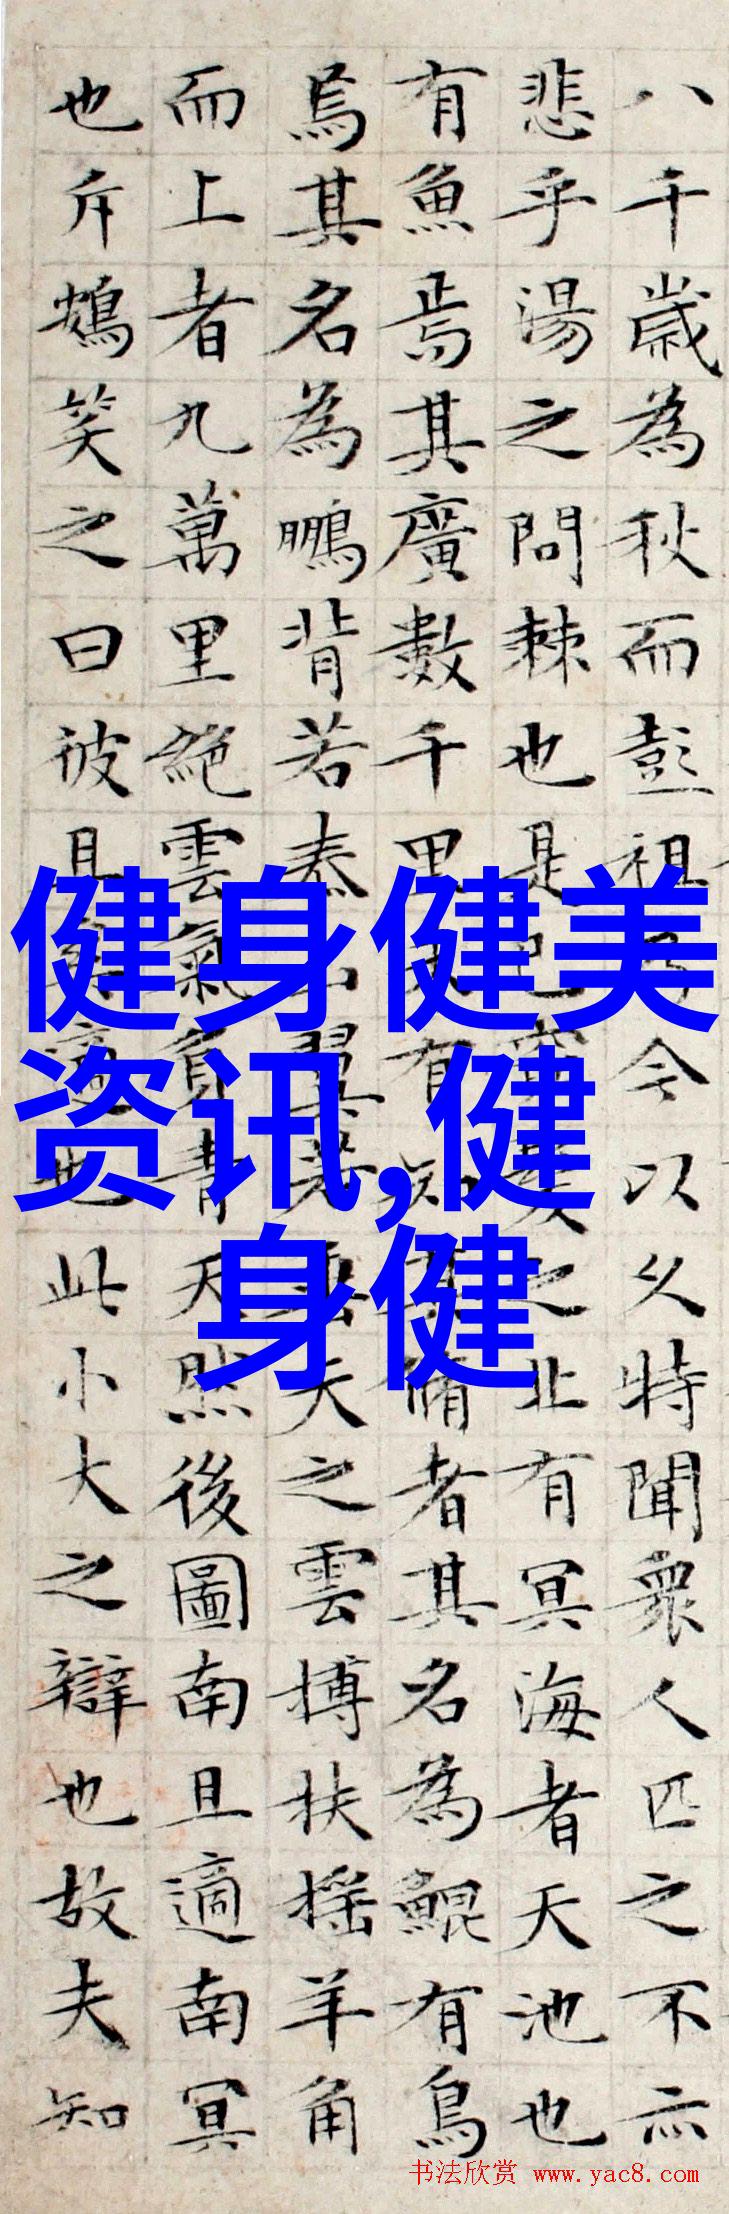 八千歲為秋而彭祖乃今以久特聞衆人匹之不亦
悲乎湯之問棘也是已窮髮之北有冥海者天池也
有魚焉其廣數千里未有知其脩者其名為鯤有鳥
焉其名為鵬背若泰山翼若垂天之雲搏扶摇羊角
而上者九萬里絶雲氣負青天然後圖南且適南冥
也斥鴳笑之曰彼且奚適也此小大之辯也故夫知
健身健美
资讯,健
身健
书法欣赏 www.yac8.com